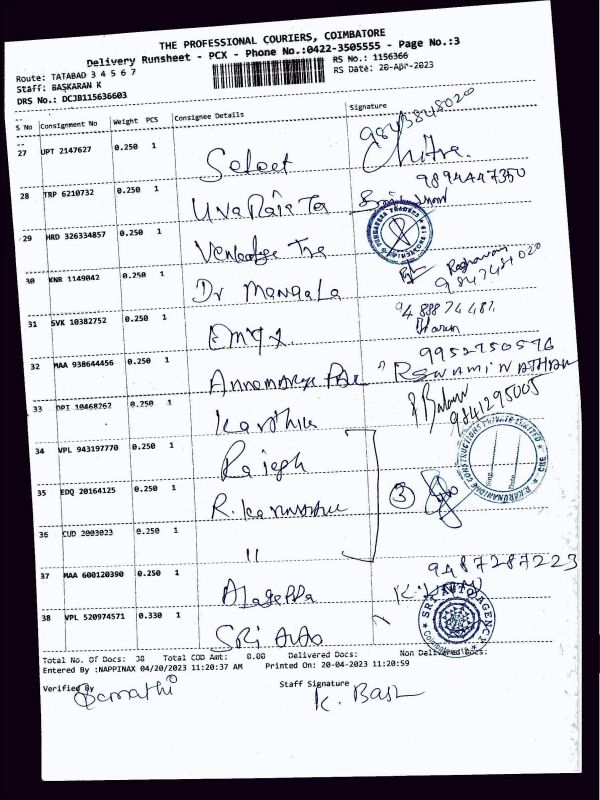 THE PROFESSIONAL COURIERS, COIMBATORE
Delivery Runsheet - PCX - Phone No.:0422-3505555 - Page No.:3
Route: TATABAD 3 4 5 6 7
RS No.: 1156366
Staff: BASKARAN K
RS Date: 20-Apr-2023
DRS No.: DCJB115636603
S No Consignment No Weight PCS Consignee Details Signature
9843848020
27 UPT 2147627 0.250 1 Select Chitra.
9894447350
28 TRP 6210732 0.250 1
29 HRD 326334857 0.250 1
Raghavan
30 KNR 1149042 0.250 1 Dr Mangala 9847481020
94 88874481
31 SVK 10382752 0.250 1
9952750596
32 MAA 938644456 0.250 1 RSWAMINATHAN
33 DPI 10468262 0.250 1 Karthik 9841295005
34 VPL 943197770 0.250 1 Rajesh
R. KARUNANIDHI CONSTRUCTIONS PRIVATE LIMITED ★ CBE
35 EDQ 20164125 0.250 1 3
36 CUD 2003023 0.250 1 "
9487287223
37 MAA 600120390 0.250 1 Alageppa
38 VPL 520974571 0.330 1 SRi Auto
SRI AUTO AGENCY
Total No. Of Docs: 38 Total COD Amt: 0.00 Delivered Docs: Non Delivered Docs:
Entered By :NAPPINAX 04/20/2023 11:20:37 AM Printed On: 20-04-2023 11:20:59
Verified By Staff Signature
K. Bask